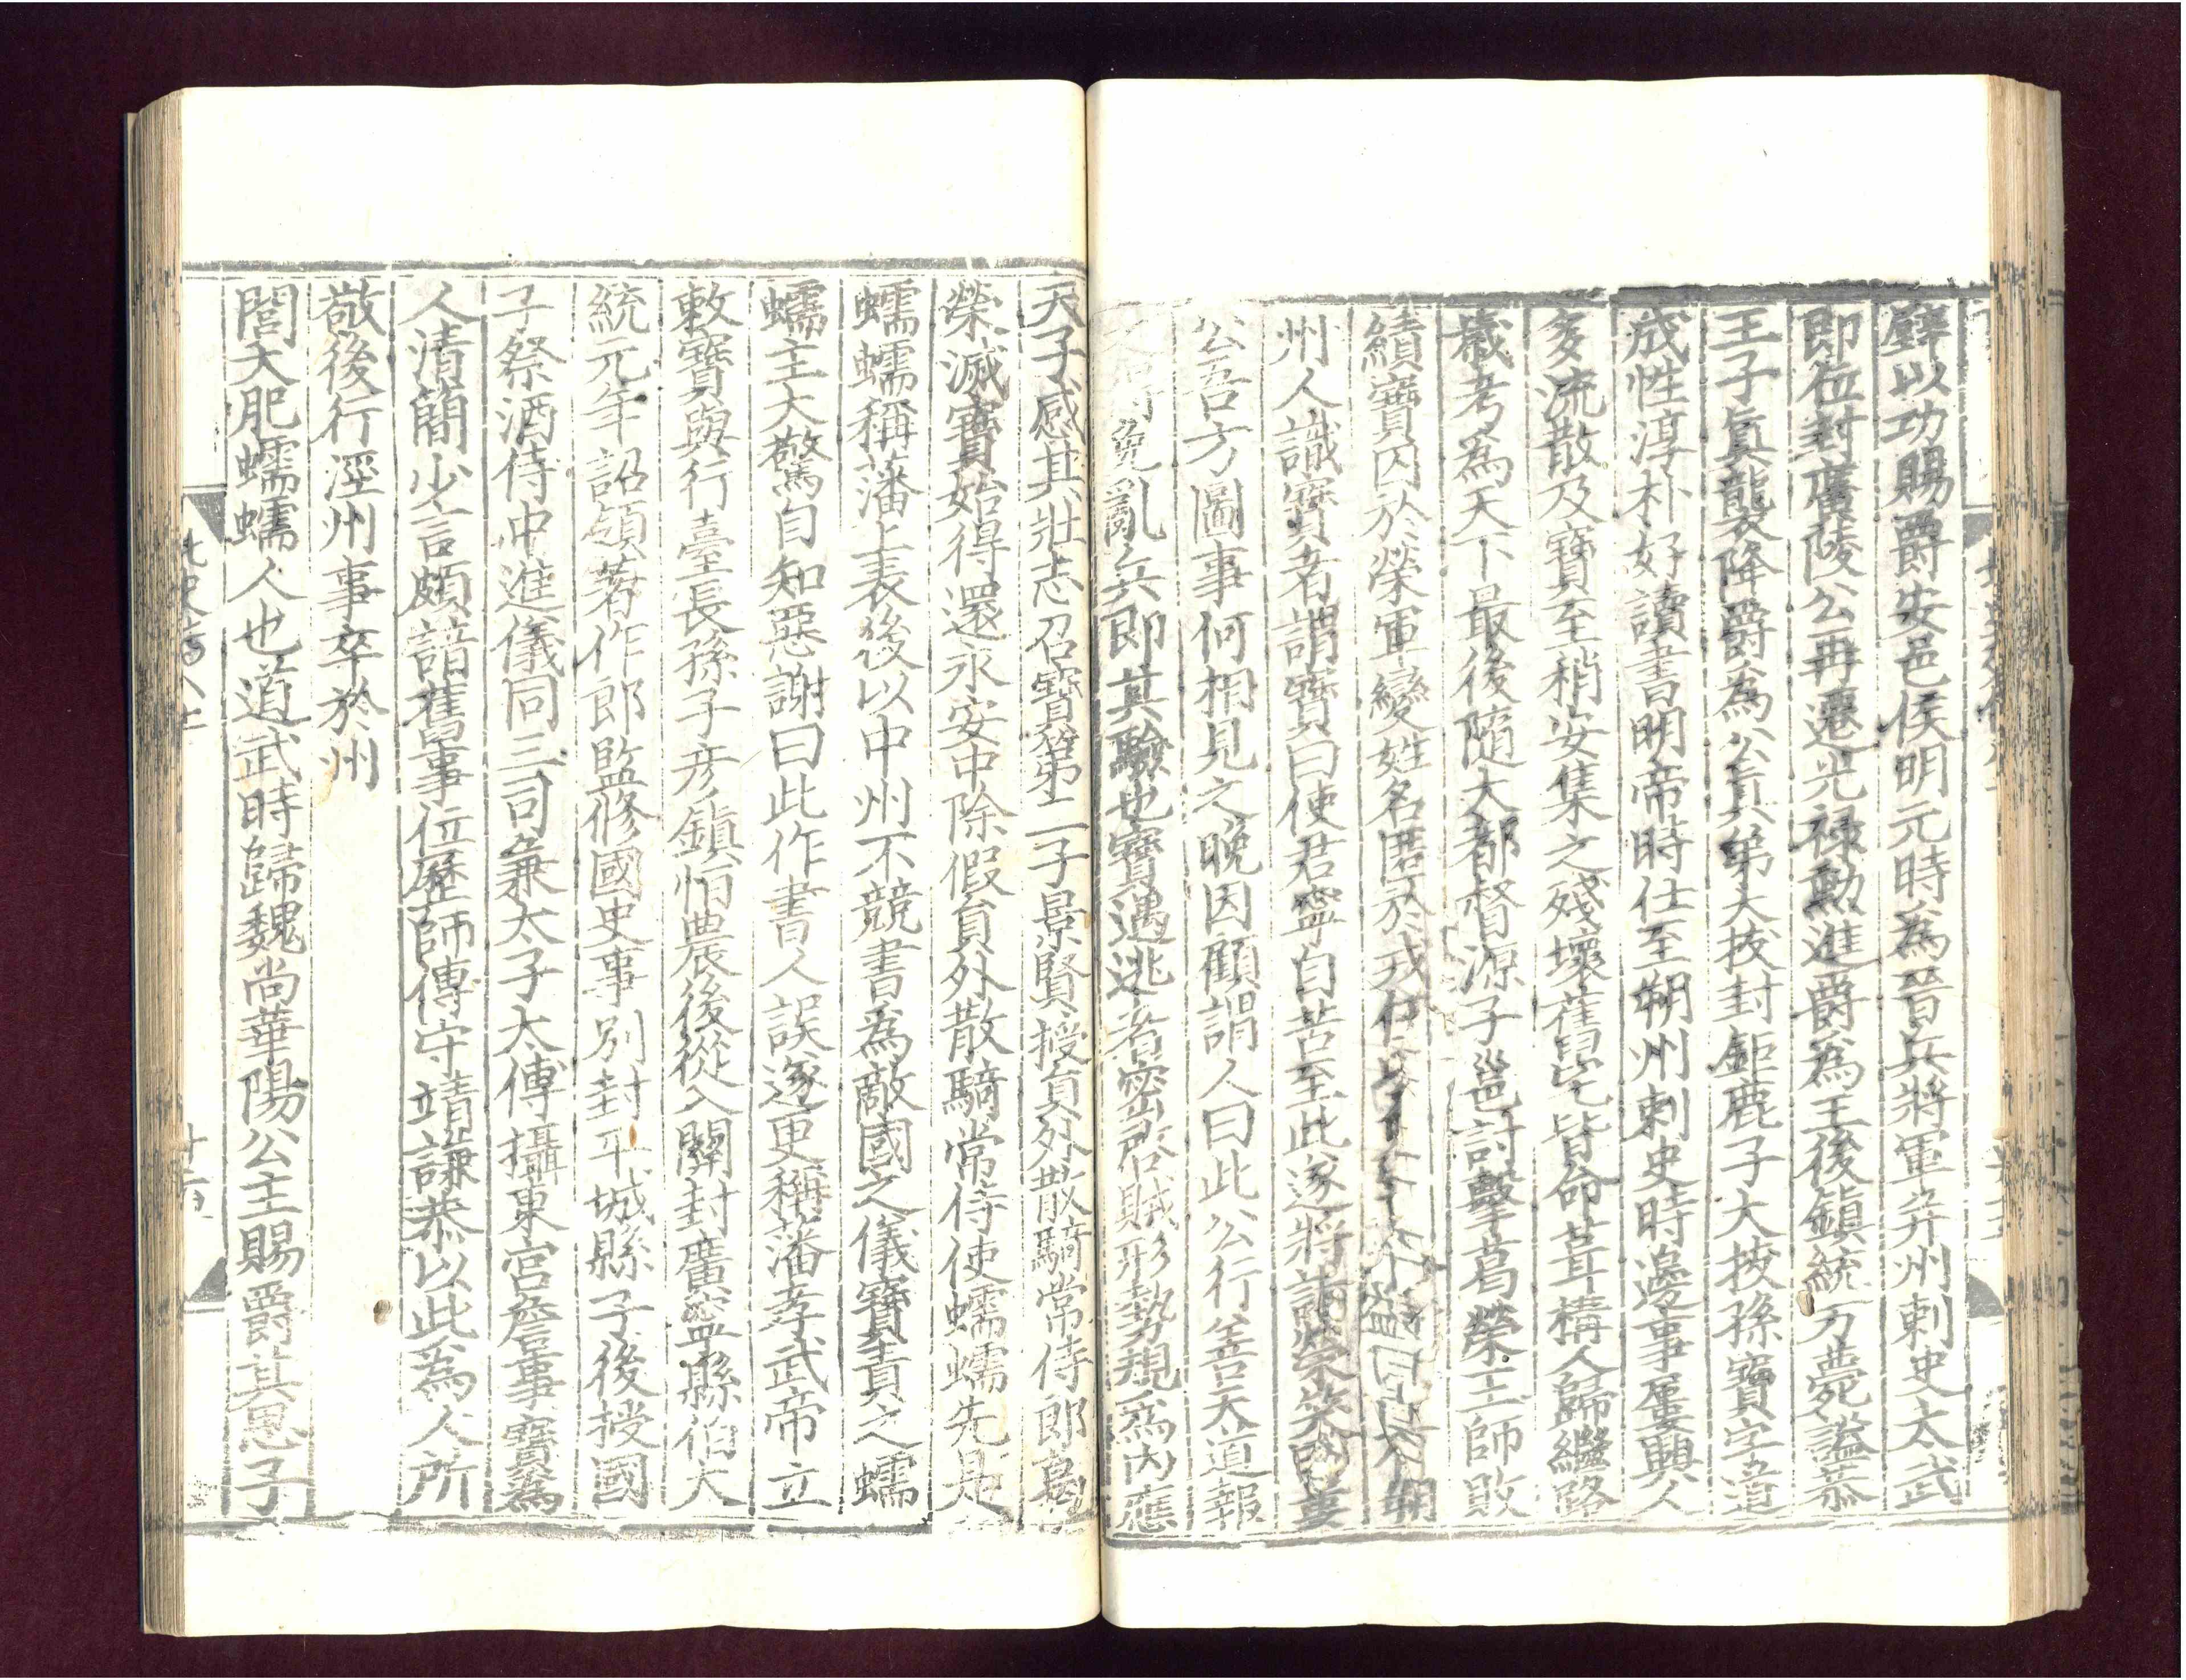 辟以功賜爵安邑侯明元時爲晉兵將軍并州刺史太武
即位封廣陵公再遷光祿勳進爵爲王後鎮統万薨謚恭
王子眞襲降爵爲公眞弟大拔封鉅鹿子大拔孫寶字道
成性淳朴好讀書明帝時仕至朔州刺史時邊事屢興人
多流散及寶至稍安集之殘壞舊宅皆命葺構人歸繼路
歳考爲天下最後隨大都督源子邕討擊葛榮王師敗
績寶囚於榮軍變姓名匿於戎伍 曰 朔
州人識寶者謂寶曰使君寧自苦至此遂將詣榮榮笑 妻
公吾方圖事何相見之晚因顧謂人曰此公行善天道報
免亂兵即其驗也寶遇逃者密啓賊形勢規爲內應
天子感其壯志召寶第二子景賢授貟外散騎常侍郎葛
榮滅寶始得還永安中除假貟外散騎常侍使蠕蠕先是
蠕蠕稱藩上表後以中州不競書爲敵國之儀寶責之蠕
蠕主大驚自知惡謝曰此作書人誤遂更稱藩孝武帝立
敕寶與行臺長孫子彥鎮恒農後從入關封廣寧縣伯大
統元年詔領著作郎監修國史事別封平城縣子後授國
子祭酒侍中進儀同三司兼太子太傅攝東宮詹事寶爲
人清簡少言頗諳舊事位歷師傅守靖謙恭以此爲人所
敬後行涇州事卒於州
閭大肥蠕蠕人也道武時歸魏尚華陽公主賜爵其思子